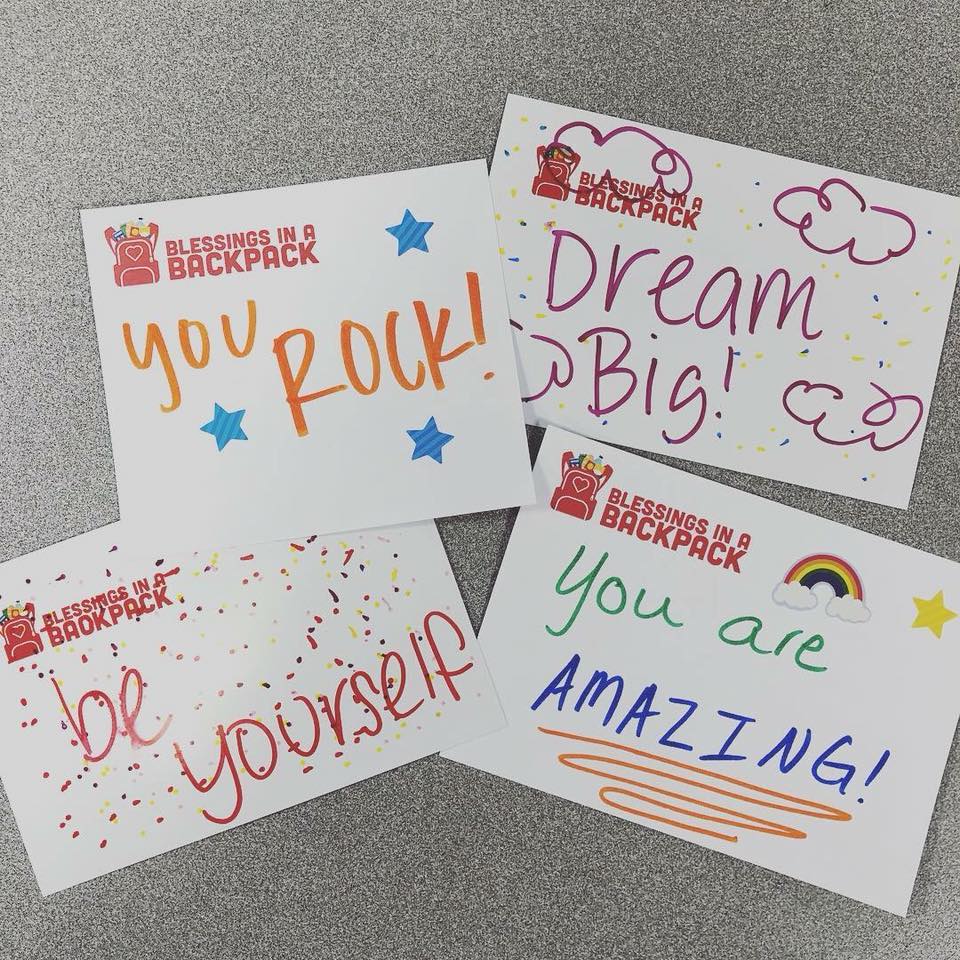 BLESSINGS IN A
BACKPACK
you
ROCK!
BLESSINGS IN A
BACKPACK
Dream
Big!
BLESSINGS IN A
BACKPACK
be
yourself
BLESSINGS IN A
BACKPACK
You are
AMAZING!